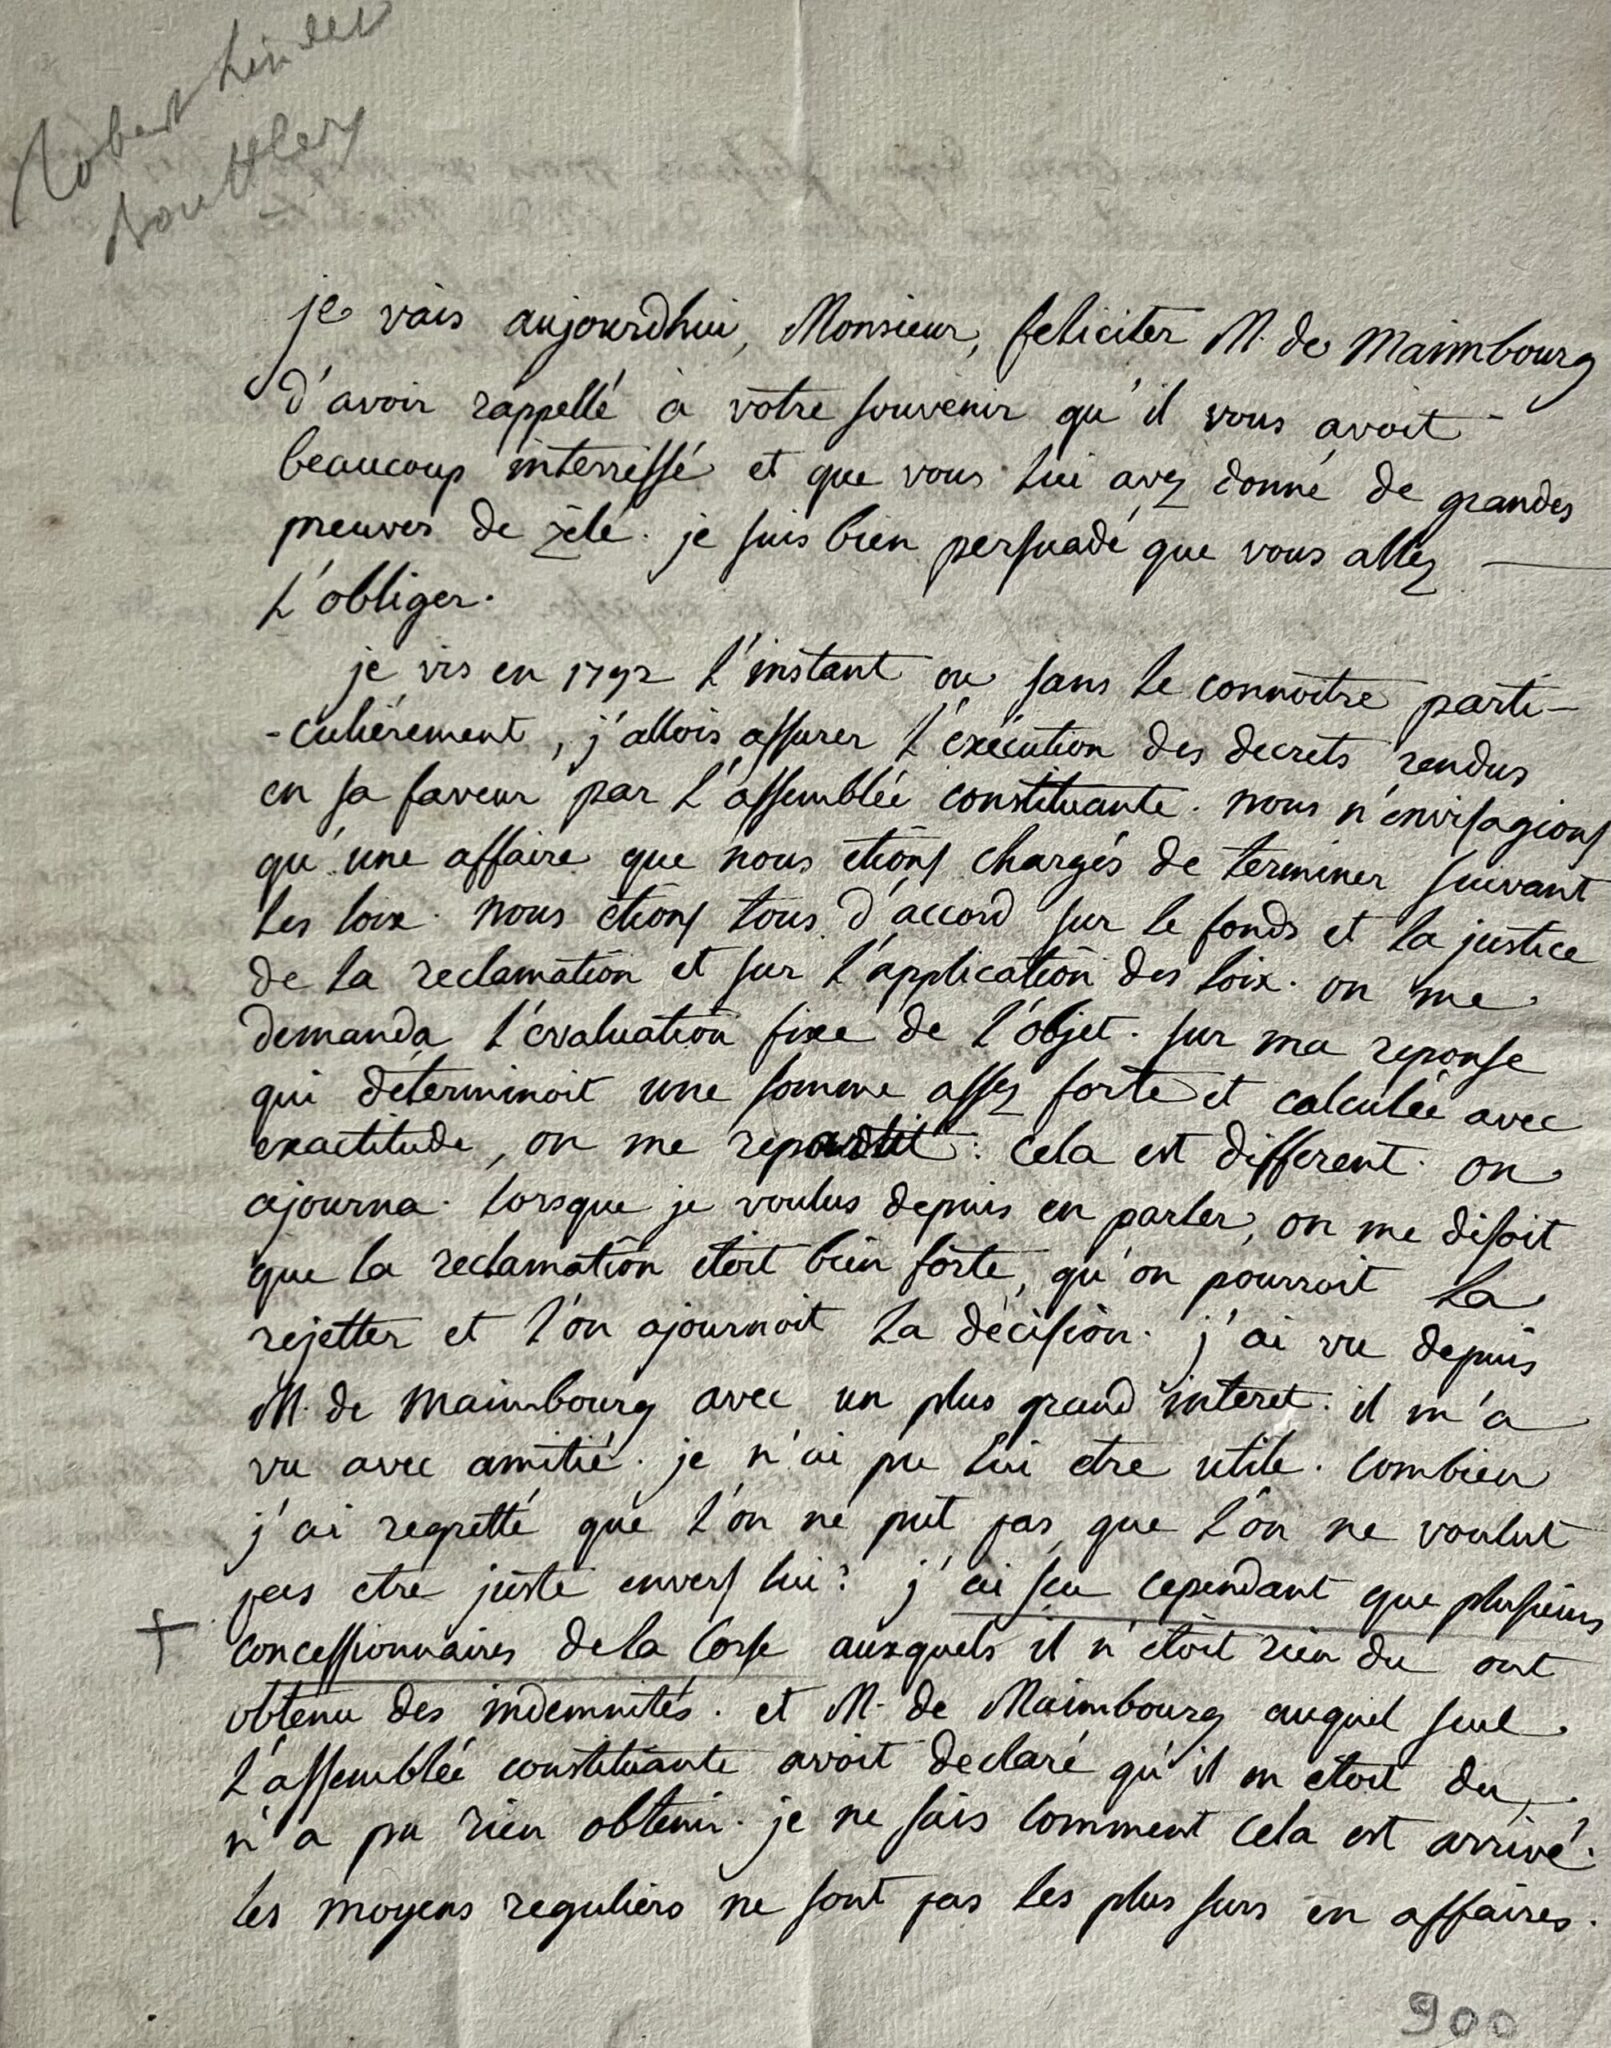 Robert Lindet
je vais aujourdhui, Monsieur, feliciter M. de Maimbourg
d'avoir rappellé à votre souvenir qu'il vous avoit
beaucoup interressé et que vous lui avez donné de grandes
preuves de zèle. je suis bien persuadé que vous allez
l'obliger.
je vis en 1792 l'instant ou sans le connoitre parti-
-culiérement, j'allois assurer l'exécution des decrets rendus
en sa faveur par l'assemblée constituante. nous n'envisagions
qu'une affaire que nous étions chargés de terminer suivant
les loix. nous étions tous d'accord sur le fonds et la justice
de la reclamation et sur l'application des loix. on me
demanda l'évaluation fixe de l'objet. sur ma reponse
qui déterminoit une somme assez forte et calculée avec
exactitude, on me repartit: cela est different. on
ajourna. lorsque je voulus depuis en parler, on me disoit
que la reclamation etoit bien forte, qu'on pourroit la
rejetter et l'on ajournoit la décision. j'ai vu depuis
M. de Maimbourg avec un plus grand interet. il m'a
vu avec amitié. je n'ai pu lui etre utile. combien
j'ai regretté que l'on ne put pas, que l'on ne voulut
pas etre juste envers lui? j'ai su cependant que plusieurs
+ concessionnaires de la Corse auxquels il n'etoit rien du ont
obtenu des indemnités. et M. de Maimbourg auquel seul
l'assemblée constituante avoit declaré qu'il en etoit du,
n'a pu rien obtenir. je ne sais comment cela est arrivé.
les moyens reguliers ne sont pas les plus surs en affaires.
900